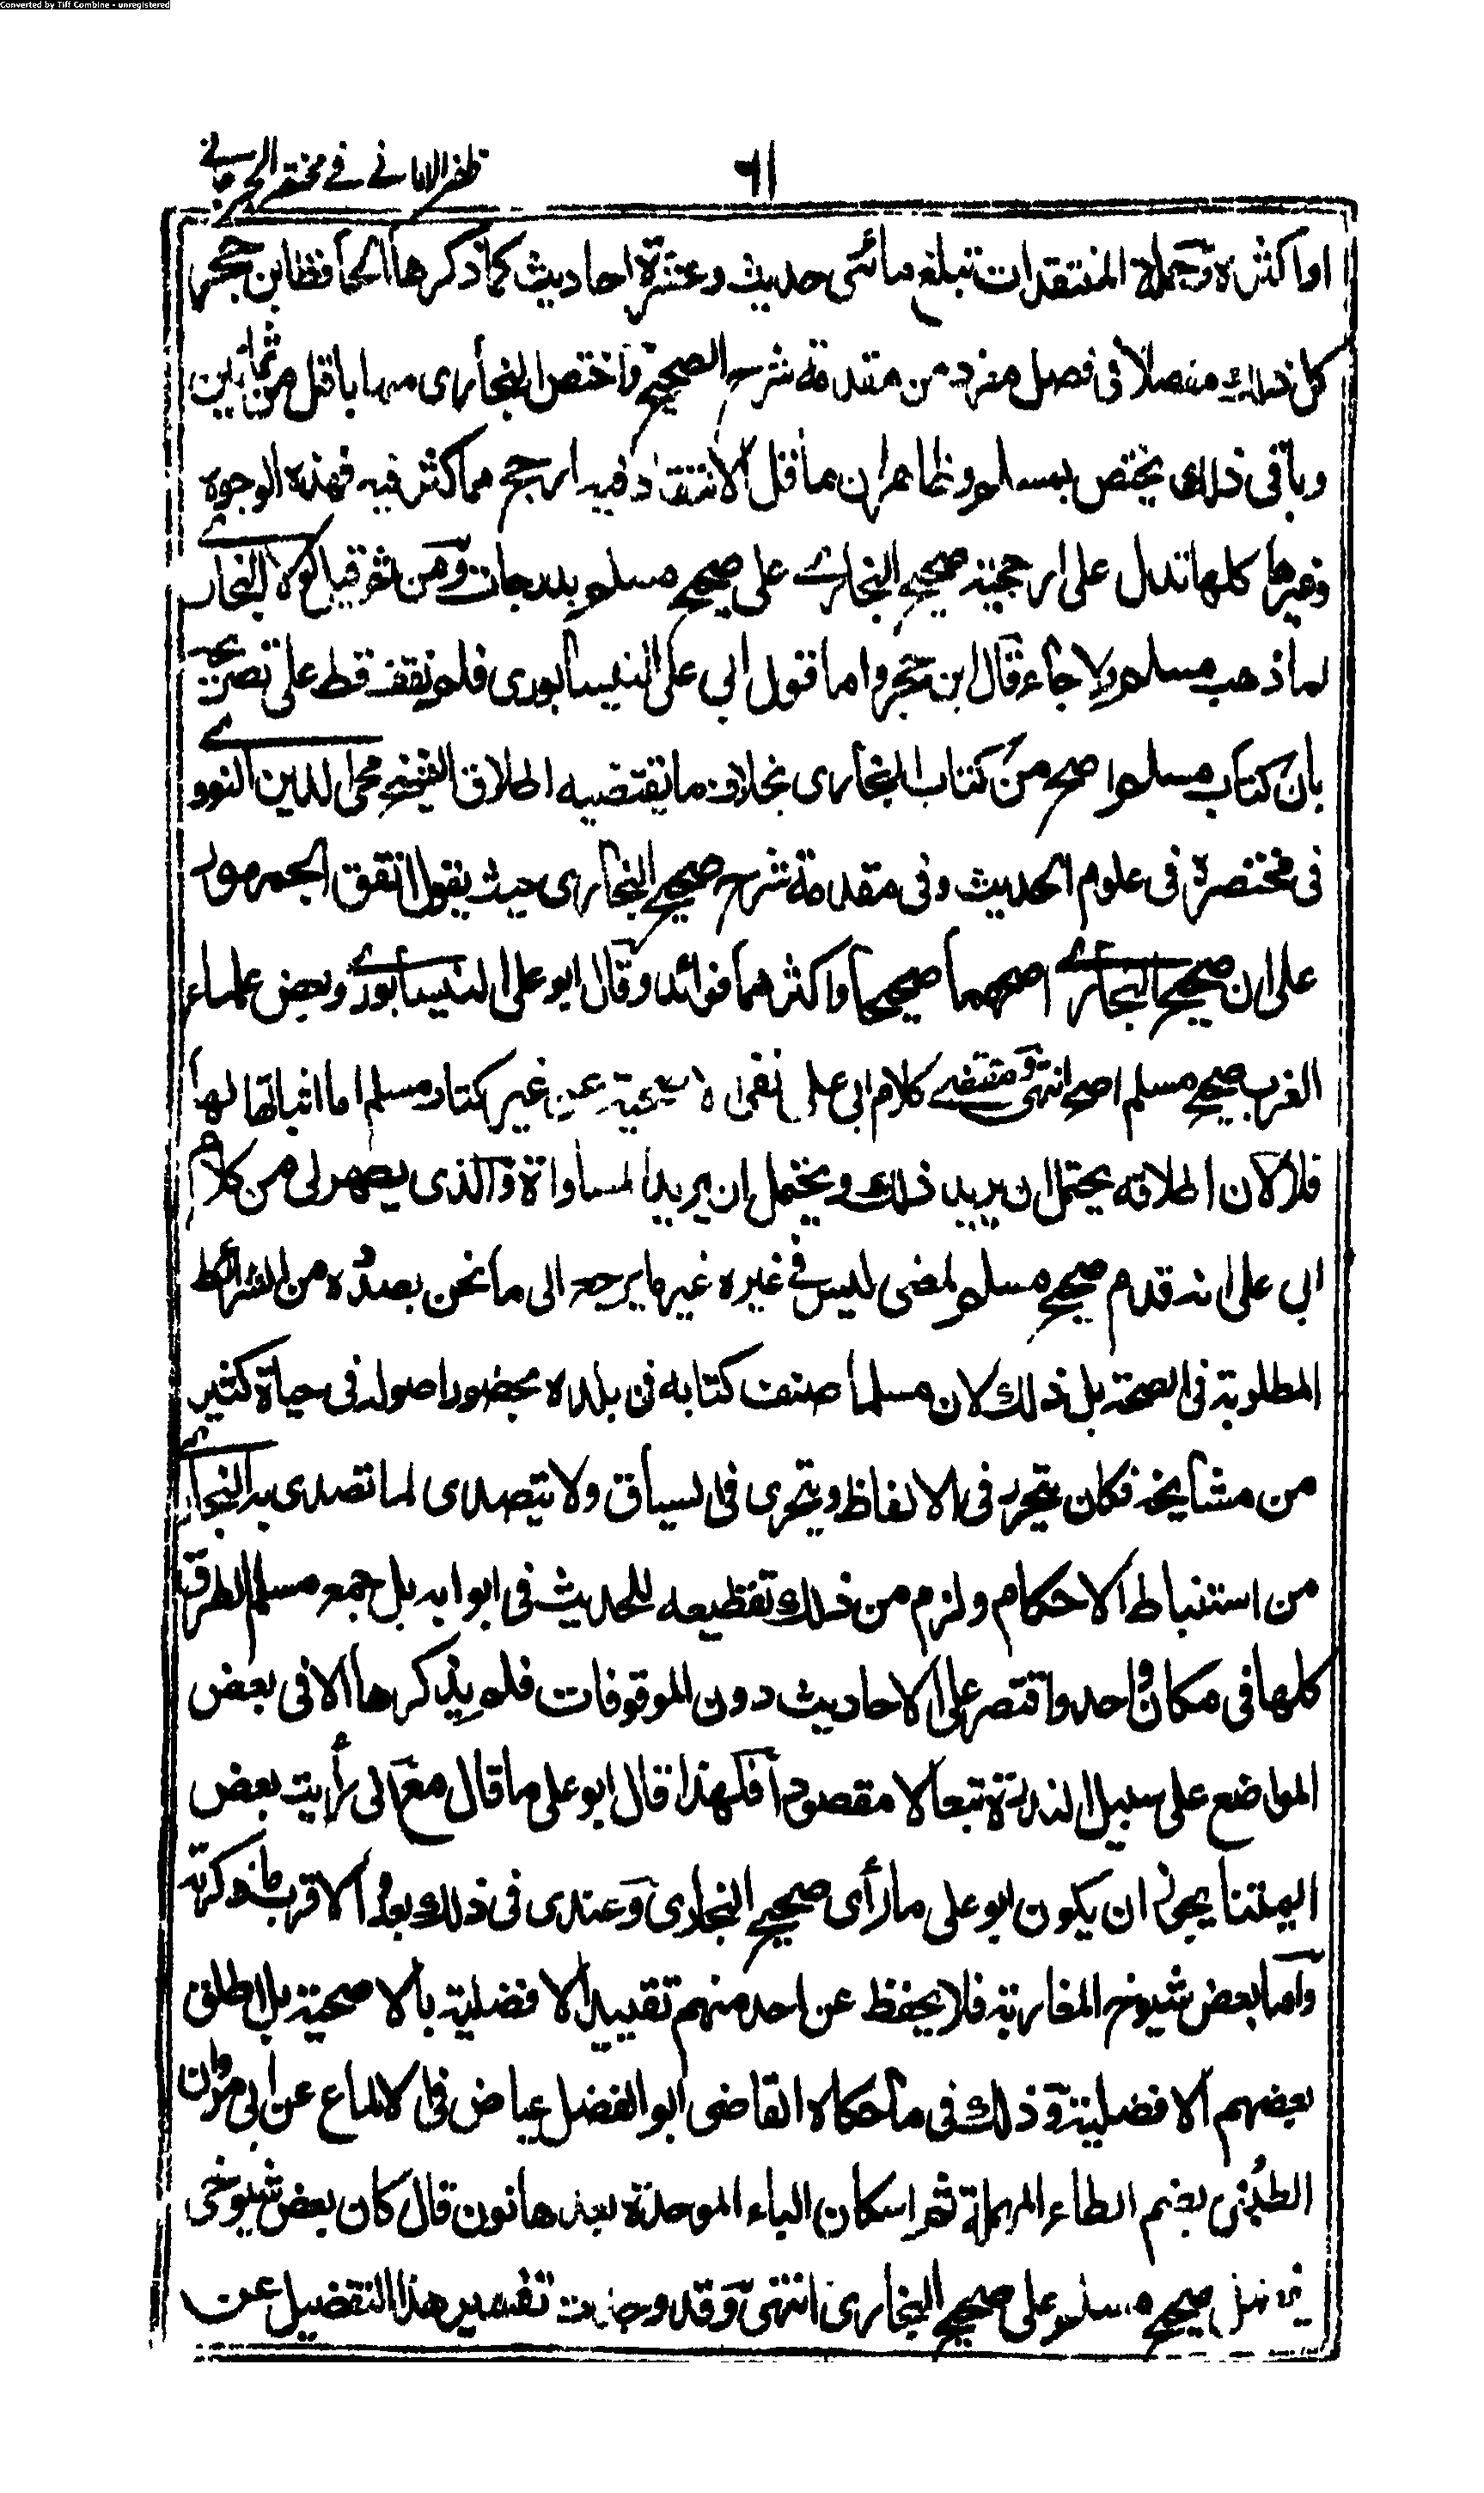 Converted by Tiff Combine - unregistered
٦١
ظفر الامانے فے مختصر الجرجانے
او اكثره وجملة المنتقدات تبلغ مائتى حديث وعشرة احاديث كما ذكرها الحافظ ابن حجر
كل ذلك مفصلا فى فصل مفرد من مقدمة شرح الصحيح واختص البخارى منها باقل من ثمانين
وباقى ذلك يختص بمسلم وظاهر ان ما قل الانتقاد فيه ارجح مما كثر فيه فهذه الوجوه
وغيرها كلها تدل على ارجحية صحيح البخارے على صحيح مسلم بدرجات ومن ثم قيل لولا البخارے
لما ذهب مسلم ولا جاء قال ابن حجر واما قول ابي على النيسابورى فلم نقف قط على تصريحه
بان كتاب مسلم اصح من كتاب البخارى بخلاف ما يقتضيه اطلاق الشيخ محى الدين النووے
فى مختصره فى علوم الحديث وفى مقدمة شرح صحيح البخارى حيث يقول اتفق الجمهور
على ان صحيح البخارے اصحهما صحيحا واكثرهما فوائد وقال ابو على النيسابورے وبعض علماء
الغرب صحيح مسلم اصح انتهى ومقتضے كلام ابى على نفى الاصحية عن غير كتاب مسلم اما اثباتها لها
فلا لان اطلاقه يحتمل ان يريد ذلك ويحتمل ان يريد المساواة والذى يظهر لى من كلام
ابى على انه قدم صحيح مسلم لمعنى ليس فے غيره غير ما يرجع الى ما نحن بصدده من الشرائط
المطلوبة فى الصحة بل ذلك لان مسلما صنف كتابه فى بلده بحضور اصوله فى حياة كثير
من مشايخه فكان يتحرر فى الالفاظ ويتحرى فى السياق ولا يتصدى لما تصدى به البخارے
من استنباط الاحكام ولزم من ذلك تقطيعه للحديث فى ابوابه بل جمع مسلم الطرق
كلها فى مكان واحد واقتصر على الاحاديث دون الموقوفات فلم يذكرها الا فى بعض
المواضع على سبيل الندرة تبعا لا مقصودا فلهذا قال ابو على ما قال مع انى رأيت بعض
ائمتنا يجوز ان يكون ابو على ما رأى صحيح البخارى وعندى فى ذلك بعد والاقرب ما ذكرته
واما بعض شيوخ المغاربة فلا يحفظ عن احد منهم تقييد الافضلية بالاصحية بل اطلق
بعضهم الافضلية وذلك فى ما حكاه القاضى ابو الفضل عياض فى الالماع عن ابى مروان
الطبنى بضم الطاء المهملة ثم اسكان الباء الموحدة بعدها نون قال كان بعض شيوخى
يفضل صحيح مسلم على صحيح البخارى انتهى وقد وجدت تفسير هذا التفضيل عن